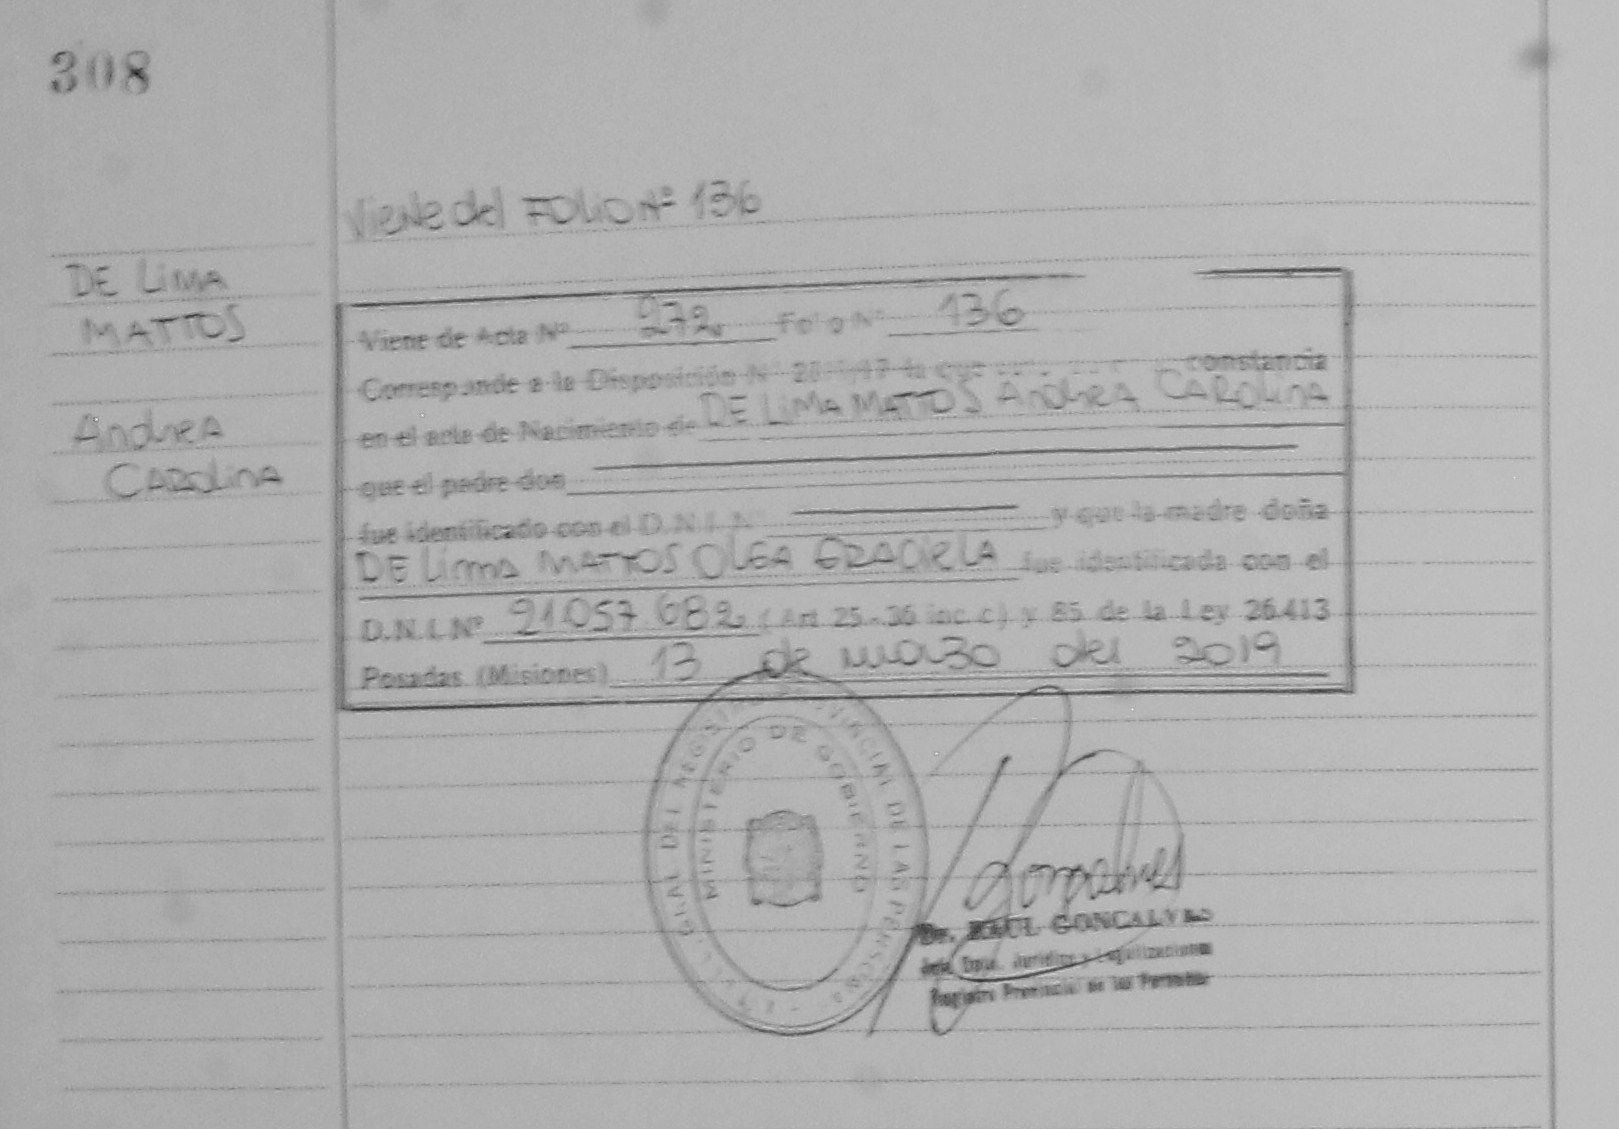 308
Viene del FOLIO Nº 136
DE LIMA
MATTOS
Andrea
CAROLINA
Viene de Acta Nº 272 Folio Nº 136
Corresponde a la Disposición Nº la que constancia
en el acta de Nacimiento de DE LIMA MATTOS Andrea CAROLINA
que el padre don
fue identificado con el D.N.I. Nº y que la madre doña
DE Lima MATTOS OLGA GRACIELA fue identificada con el
D.N.I. Nº 21.057.682 (Art 25-36 inc. c) y 85 de la Ley 26.413
Posadas (Misiones) 13 de marzo del 2019
GRAL DEL REGISTRO PROVINCIAL DE LAS PERSONAS
MINISTERIO DE GOBIERNO
Gonçalves
Dr. RAUL GONCALVES
Jefe Dpto. Jurídico y Legalizaciones
Registro Provincial de las Personas